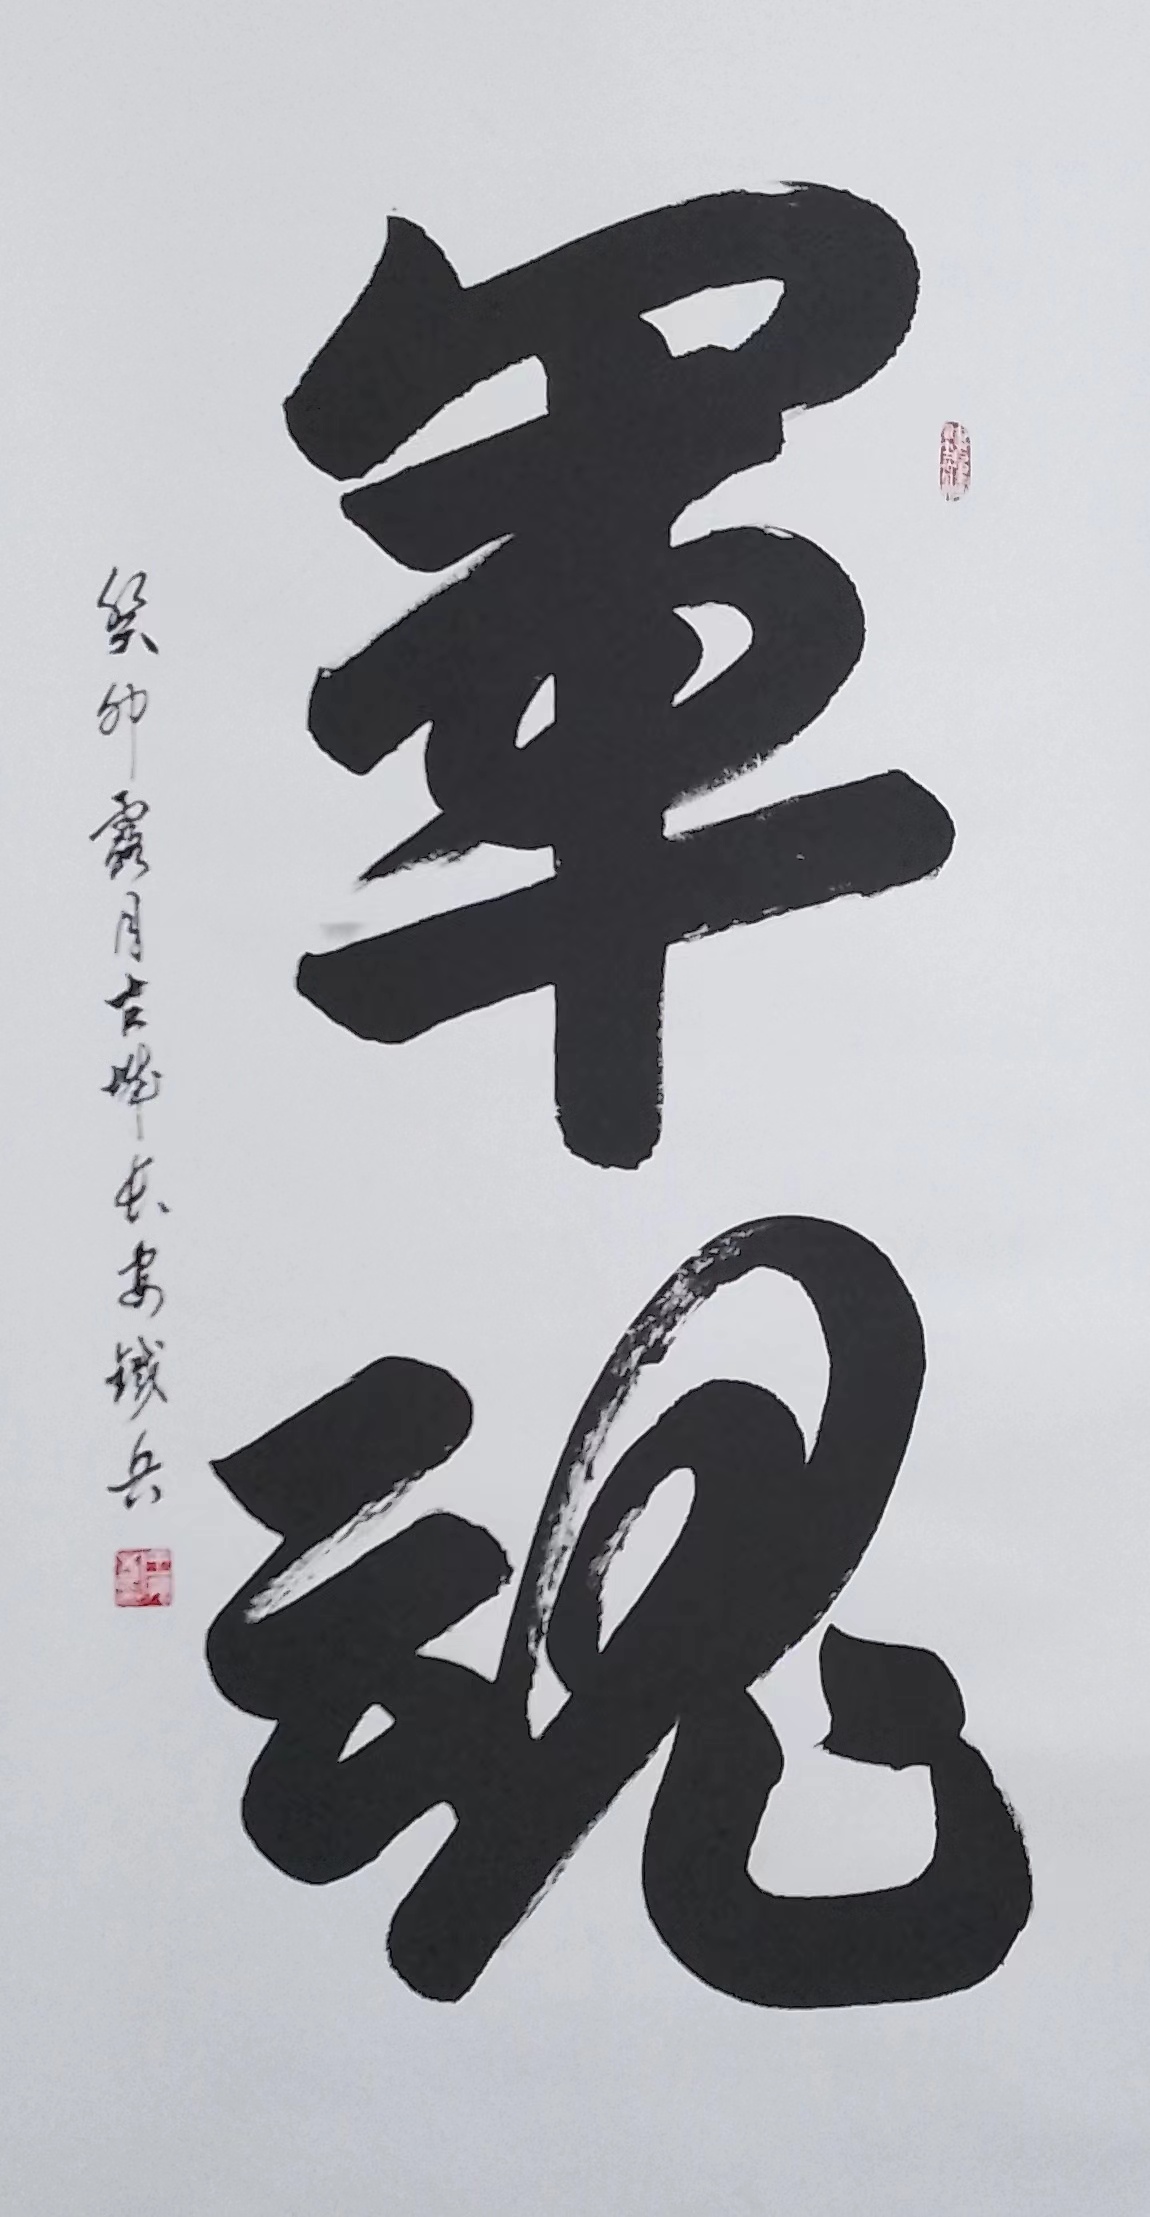 軍魂
癸卯露月古城长安鐵兵